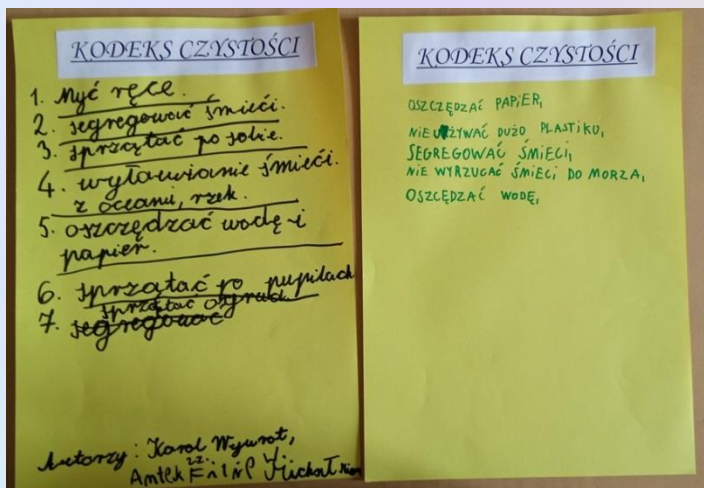 KODEKS CZYSTOŚCI
1. Myć ręce.
2. segregować śmieci.
3. sprzątać po sobie.
4. wyławianie śmieci.
z oceanu, rzek.
5. oszczędzać wodę i
papier.
6. sprzątać po pupilach
sprzątać ogród
7. segregować
Autorzy: Karol Wywrot,
Antek Filip Michał
KODEKS CZYSTOŚCI
OSZCZĘDZAĆ PAPIER,
NIE UŻYWAĆ DUŻO PLASTIKU,
SEGREGOWAĆ ŚMIECI,
NIE WYRZUCAĆ ŚMIECI DO MORZA,
OSZCĘDZAĆ WODĘ,